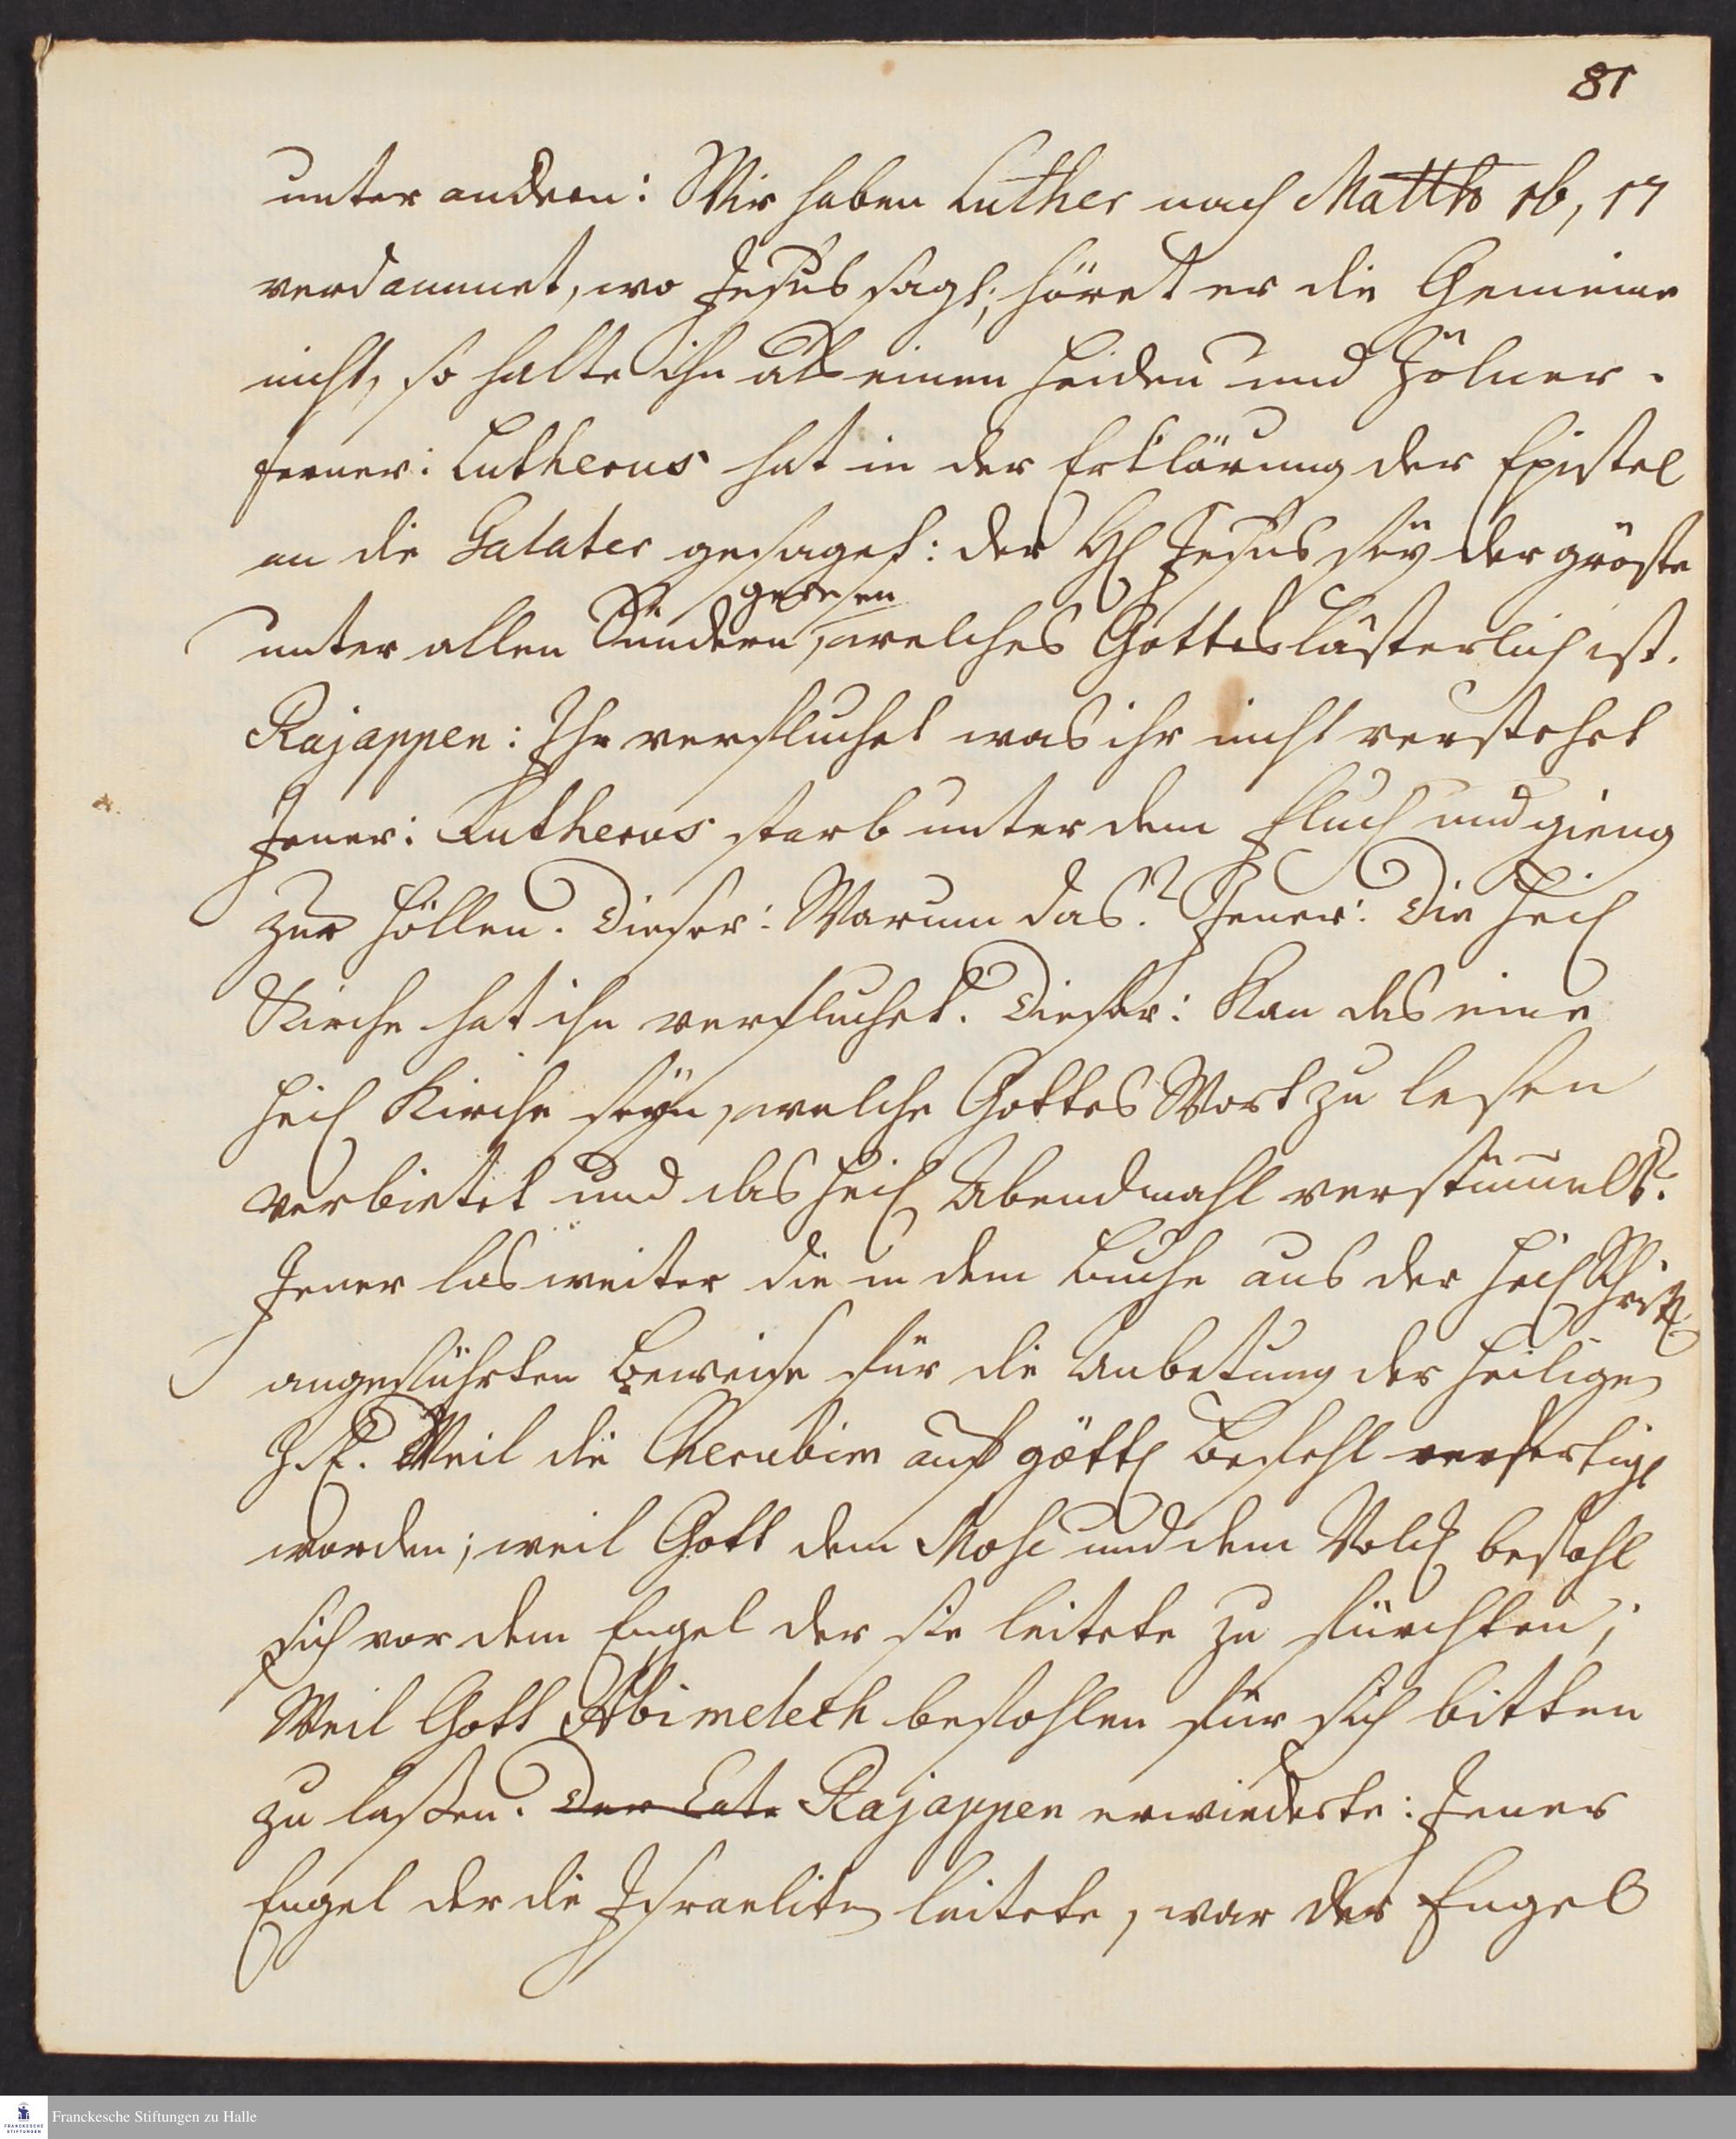 81
unter andern: Wir haben Luther nach Matth 16, 17
verdammet, wo Jesus sagt; höret er die Gemeine
nicht, so halte ihn als einen Heiden und Zölner.
ferner: Lutherus hat in der Erklärung der Epistel
an die Galater gesaget: der H Jesus seÿ der gröste
gewesen
unter allen Sündern, welches Gotteslästerlich ist.
Rajappen: Ihr verfluchet was ihr nicht verstehet
Jener: Lutherus starb unter dem Fluch und gieng
zur Höllen. Dieser: Warum das? Jener: Die Heil
Kirche hat ihn verfluchet. Dieser: Kan das eine
Heil Kirche seÿn, welche Gottes Wort zu lesen
verbietet und das Heil Abendmahl verstümmelt?
Jener las weiter die in dem Buche aus der Heil Schrift
angeführten Beweise für die Anbetung der Heiligen
Z. E. Weil die Cherubim auf göttl Befehl verfertigt
worden; weil Gott dem Mose und dem Volck befohl
sich vor dem Engel der sie leitete zu fürchten;
Weil Gott Abimelech befohlen für sich bitten
zu laßen. Der Cate Rajappen erwiederte: Jener
Engel der die Israeliten leitete, war der Engel
Franckesche Stiftungen zu Halle
FRANCKESCHE STIFTUNGEN